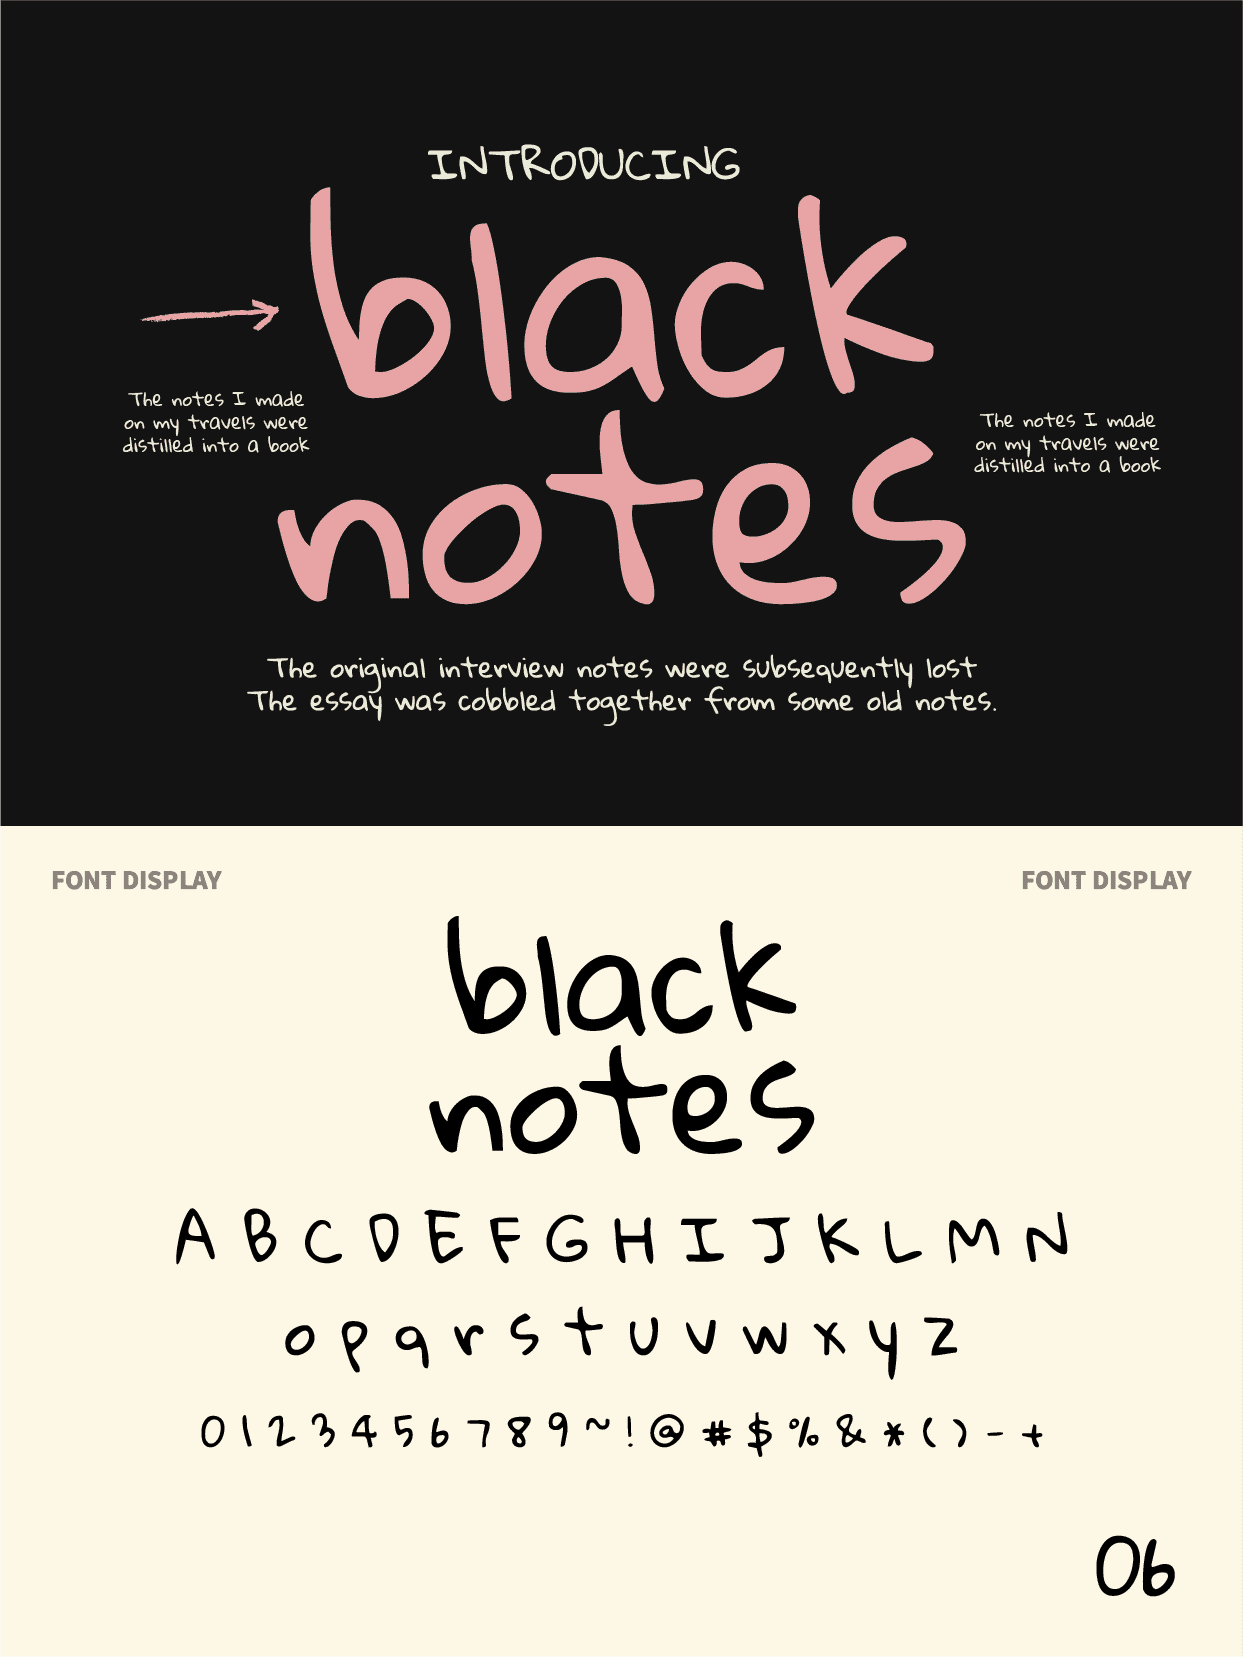 INTRODUCING
black
notes
The notes I made
on my travels were
distilled into a book
The notes I made
on my travels were
distilled into a book
The original interview notes were subsequently lost
The essay was cobbled together from some old notes.
FONT DISPLAY
FONT DISPLAY
black
notes
A B C D E F G H I J K L M N
o p q r s t u v w x y z
0 1 2 3 4 5 6 7 8 9 ~ ! @ # $ % & * ( ) - +
06